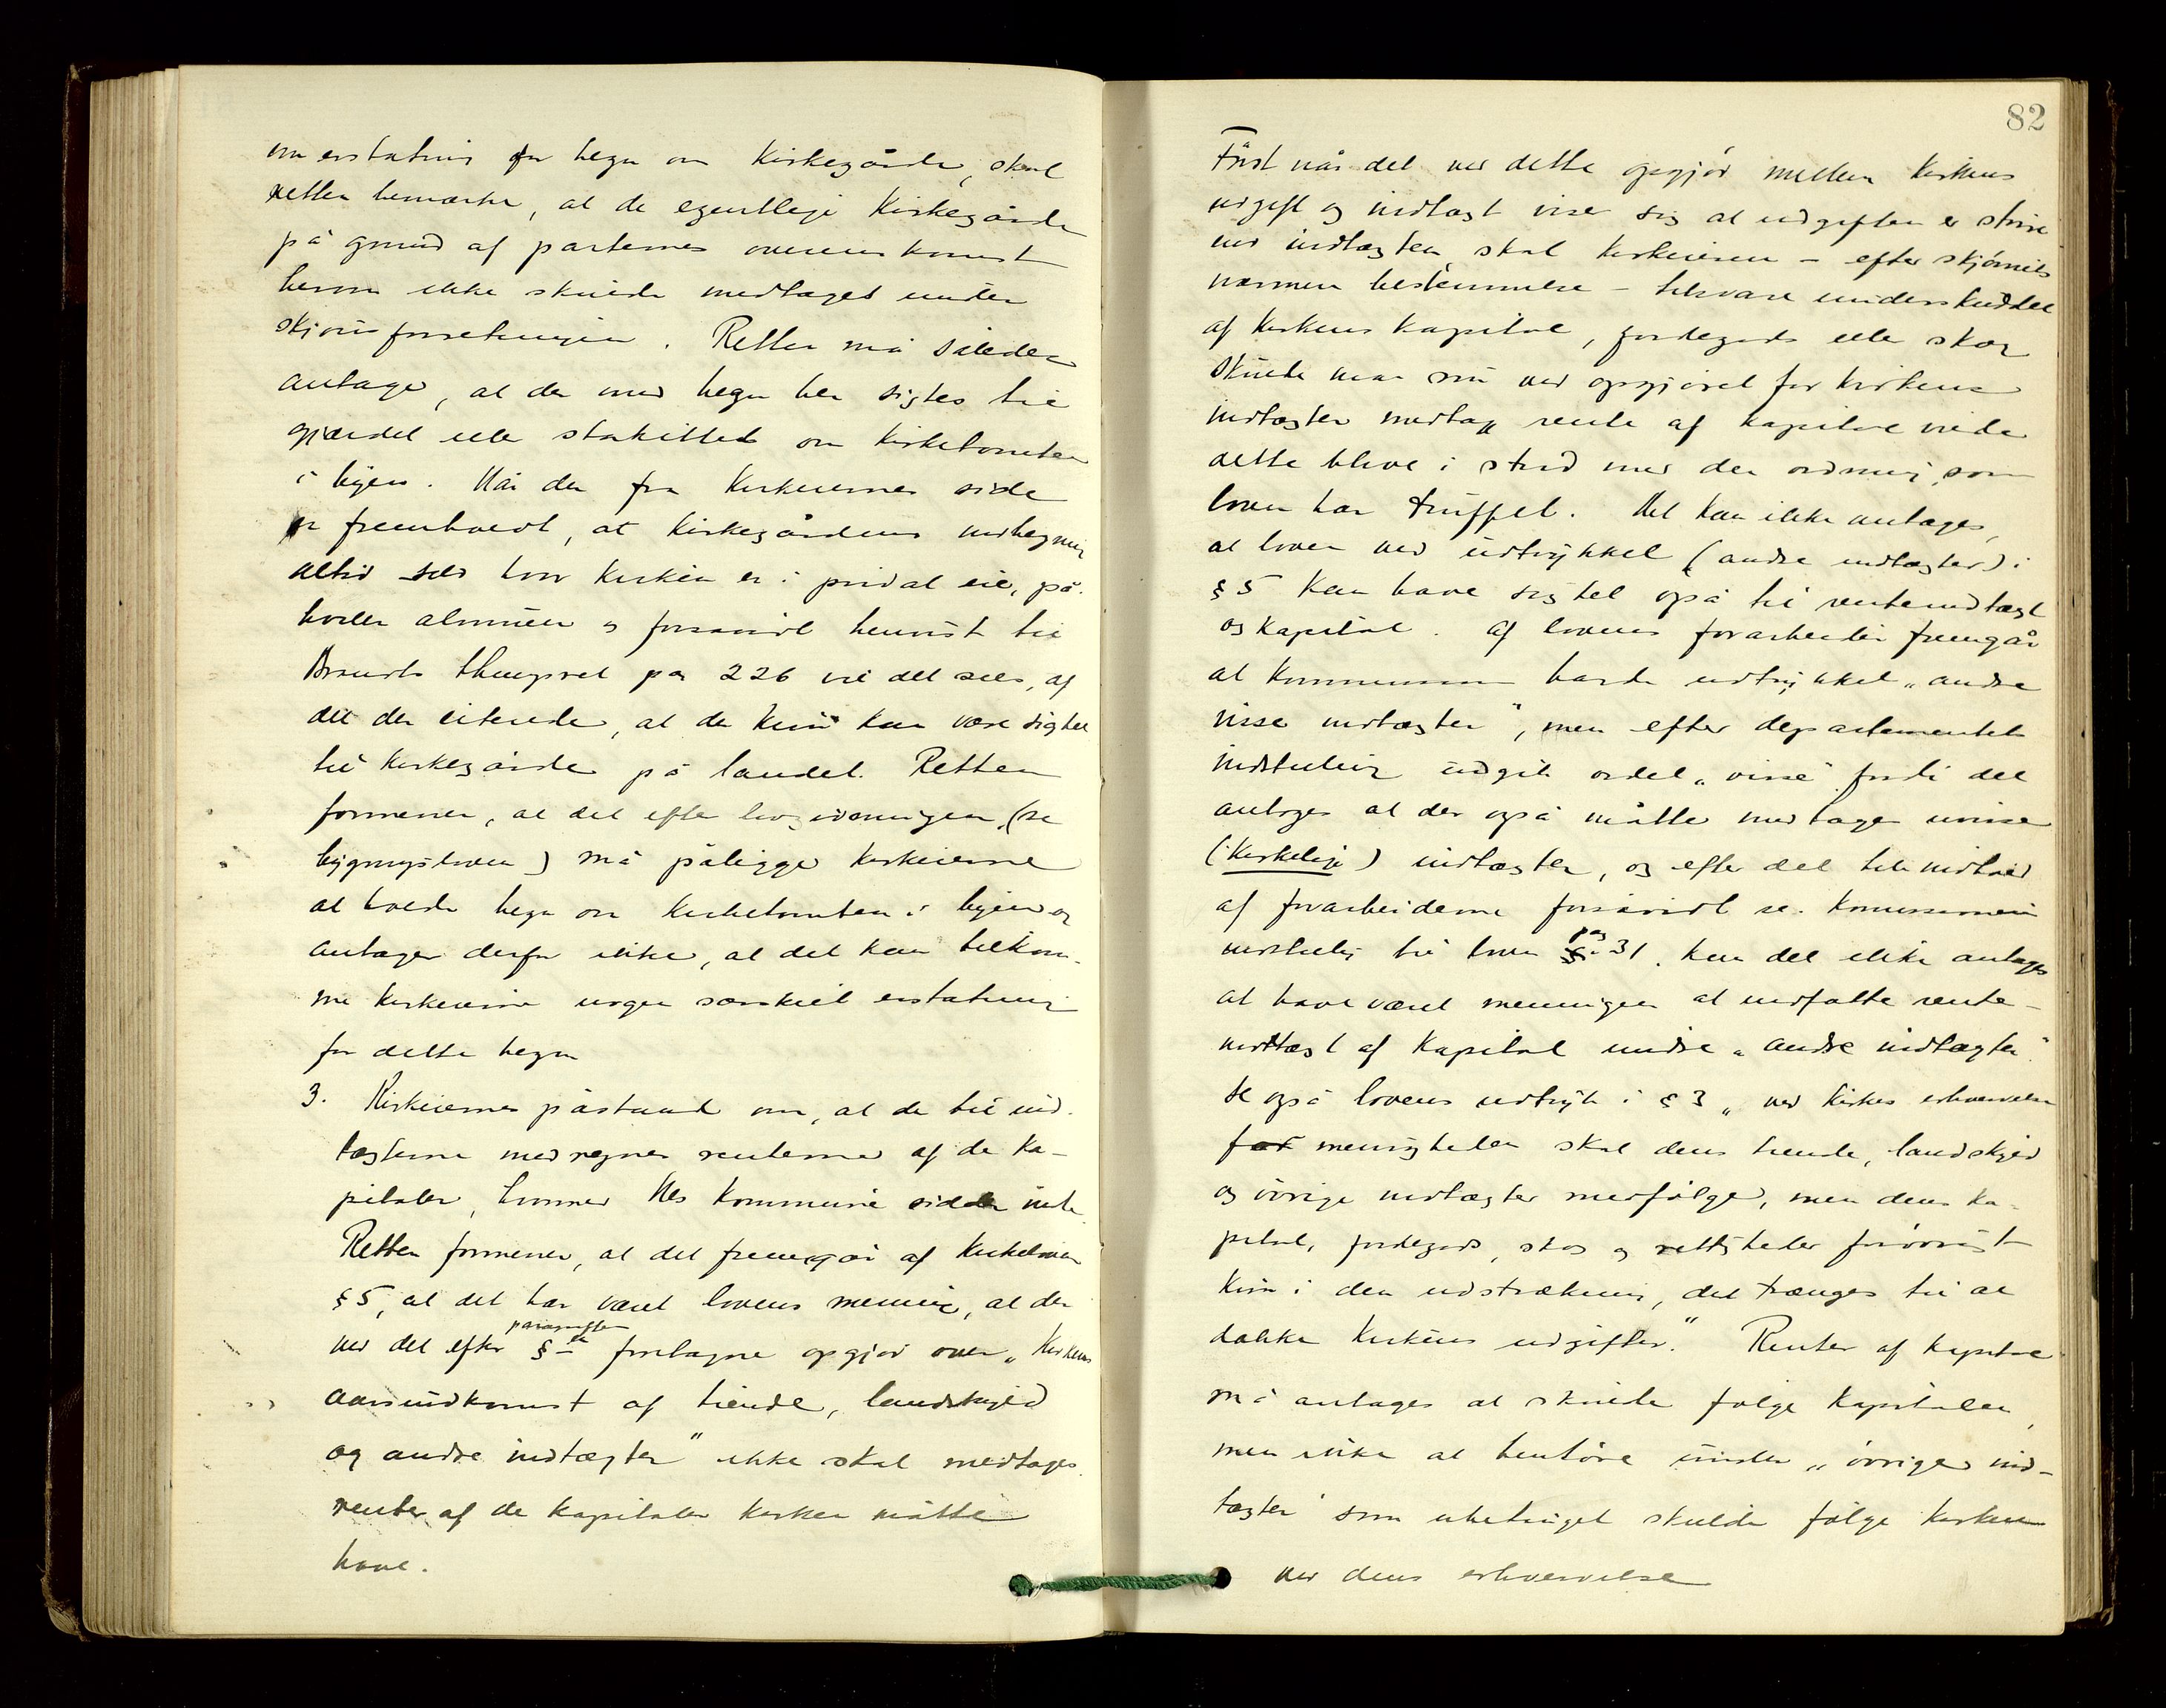 om erstatning for hegn om Kirkegårde, skal
retten bemærke, at de egentlige Kirkegårde
på grund af parternes overenskomst
herom ikke skulde medtages under
skjønsforretningen. Retten må således
antage, at der med hegn her sigtes til
gjærdet eller stakittet om kirketomten
i byen. Når der fra Kirkeiernes side
er fremholdt, at Kirkegårdens indhegning
altid selv hvor kirken er i privat eie, på-
hviler almuen og forsåvidt henvist til
Brandts thingsret pag 226 vil det sees, af
det der citerede, at der kun kan være sigtet
til kirkegårde på landet. Retten
formener, at det efter lovgivningen (se
bygningsloven) må påligge kirkeierne
at holde hegn om kirketomten i byen og
antager derfor ikke, at det kan tilkom-
me kirkeierne nogen særskilt erstatning
for dette hegn
3. Kirkeiernes påstand om, at de til ind-
tægterne medregner renterne af de ka-
pitaler, hvormed Nes Kommune sidder inde
Retten formener, at det fremgår af Kirkeloven
§ 5, at det har været lovens mening, at der
ved det efter § paragrafen foretagne opgjør over „Kirkens
aarsindkomst af tiende, landskyld
og andre indtægter" ikke skal medtages
renter af de kapitaler kirken måtte
have.
82
Først når det ved dette opgjør mellem kirkens
udgift og indtægt viser sig at udgiften er større
end indtægten, skal kirkeieren – efter skjønnets
nærmere bestemmelse – tilsvare underskuddet
af kirkens kapital, jordegods eller skog
Skulde man nu ved opgjøret for kirkens
indtægter medtage rente af kapital vilde
dette blive i strid med den ordning, som
loven har truffet. Det kan ikke antages,
at loven ved udtrykket (andre indtægter) i
§ 5 kan have sigtet også til renteindtægt
og kapital. Af lovens forarbeider fremgår
at Kommissionen havde udtrykket „andre
visse indtægter", men efter departementets
indstilling udgik ordet „visse" fordi det
antoges at der også måtte medtages uvisse
(kirkelige) indtægter, og efter det hele indhold
af forarbeiderne forsåvidt se Kommissionens
indstilling til loven pag 31. kan det ikke antages
at have været meningen at indfatte rente-
indtægt af Kapital under „andre indtægter".
Se også lovens udtryk i § 3 „ved Kirkes erhvervelse
for menigheden skal dens tiende, landskyld
og øvrige indtægter medfølge, men dens ka-
pital, jordegods, skog og rettigheder forøvrigt
kun i den udstrækning, det trænges til at
dække Kirkens udgifter." Renter af kapital
må antages at skulde følge Kapitalen,
men ikke at henhøre under „øvrige ind-
tægter" som ubetinget skulde følge kirken
ved dens erhvervelse